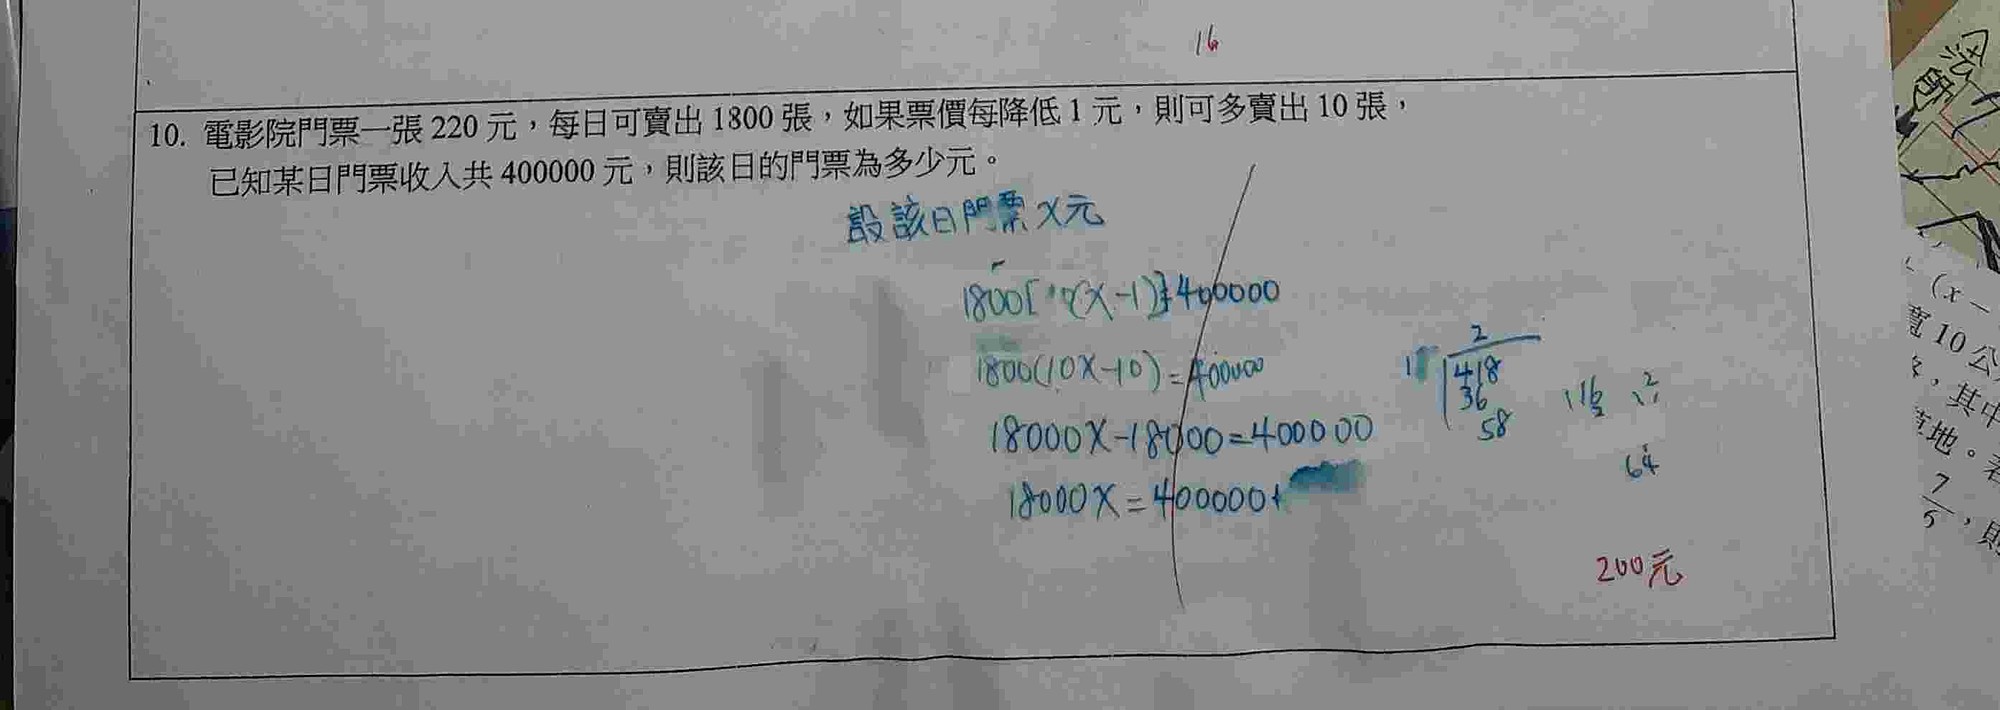 16
10. 電影院門票一張 220 元，每日可賣出 1800 張，如果票價每降低 1 元，則可多賣出 10 張，
已知某日門票收入共 400000 元，則該日的門票為多少元。
設該日門票 x 元
1800[ (x-1)]=400000
1800(10x-10)=400000
18000x-18000=400000
18000x=400000+
2
418
36
58
64
200元
(x－
寬 10 公
，其中
地。若
7
5
，則